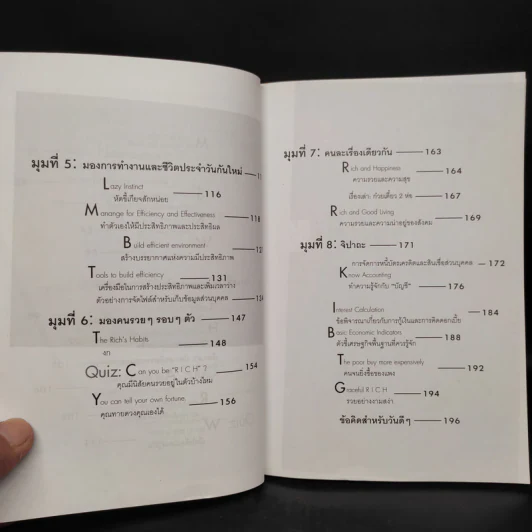 มุมที่ 5: มองการทำงานและชีวิตประจำวันกันใหม่
Lazy Instinct 116
หัดขี้เกียจสักหน่อย
Manange for Efficiency and Effectiveness 118
ทำตัวเองให้มีประสิทธิภาพและประสิทธิผล
Build efficient environment
สร้างบรรยากาศแห่งความมีประสิทธิภาพ
Tools to build efficiency 131
เครื่องมือในการสร้างประสิทธิภาพและเพิ่มเวลาว่าง
ตัวอย่างการจัดไฟล์สำหรับเก็บข้อมูลส่วนบุคคล
มุมที่ 6: มองคนรวยๆ รอบๆ ตัว 147
The Rich's Habits 148
งก
Quiz: Can you be "R I C H" ? 154
คุณมีนิสัยคนรวยอยู่ในตัวบ้างไหม
You can tell your own fortune. 156
คุณทายดวงคุณเองได้
มุมที่ 7: คนละเรื่องเดียวกัน 163
Rich and Happiness 164
ความรวยและความสุข
เรื่องเล่า: ก๋วยเตี๋ยว 2 ห่อ 167
Rich and Good Living 169
ความรวยและความน่าอยู่ของสังคม
มุมที่ 8: จิปาถะ 171
การจัดการหนี้บัตรเครดิตและสินเชื่อส่วนบุคคล 172
Know Accounting 176
ทำความรู้จักกับ "บัญชี"
Interest Calculation 184
ข้อพิจารณาเกี่ยวกับการกู้เงินและการคิดดอกเบี้ย
Basic Economic Indicators 188
ตัวชี้เศรษฐกิจพื้นฐานที่ควรรู้จัก
The poor buy more expensively 192
คนจนยิ่งซื้อของแพง
Graceful R I C H 194
รวยอย่างงามสง่า
ข้อคิดสำหรับวันดีๆ 196